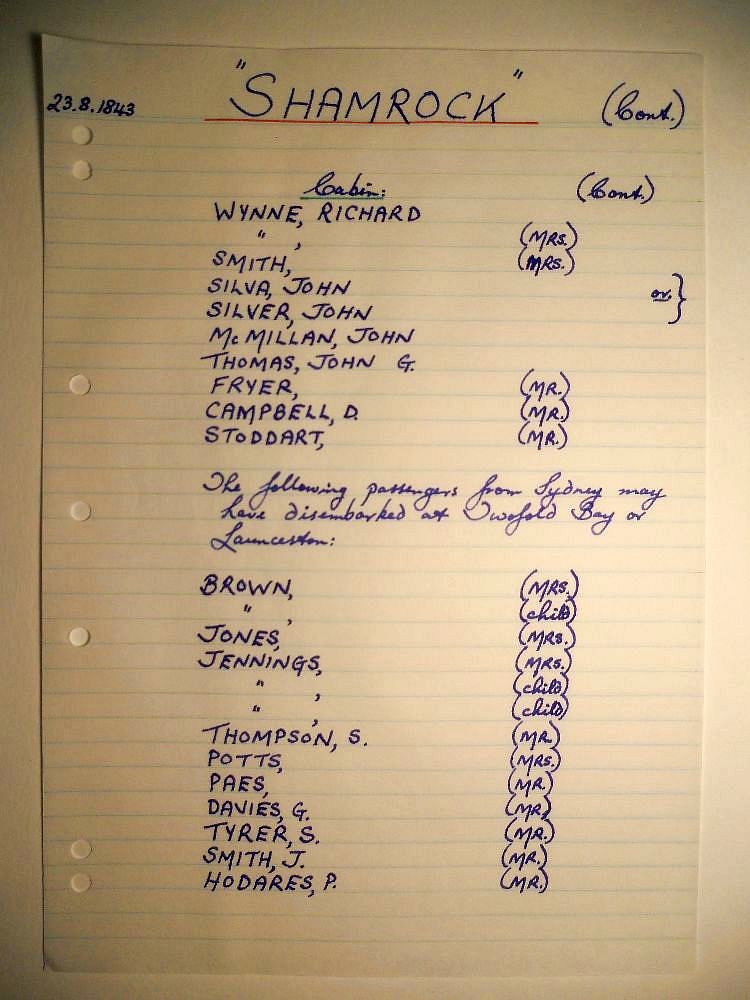 23.8.1843 "SHAMROCK" (Cont.)
Cabin: (Cont.)
WYNNE, RICHARD
" , (MRS.)
SMITH, (MRS.)
SILVA, JOHN
or. }
SILVER, JOHN
McMILLAN, JOHN
THOMAS, JOHN G.
FRYER, (MR.)
CAMPBELL, D. (MR.)
STODDART, (MR.)
The following passengers from Sydney may
have disembarked at Twofold Bay or
Launceston:
BROWN, (MRS.)
" , (child)
JONES, (MRS.)
JENNINGS, (MRS.)
" , (child)
" , (child)
THOMPSON, S. (MR.)
POTTS, (MRS.)
PAES, (MR.)
DAVIES, G. (MR.)
TYRER, S. (MR.)
SMITH, J. (MR.)
HODARES, P. (MR.)